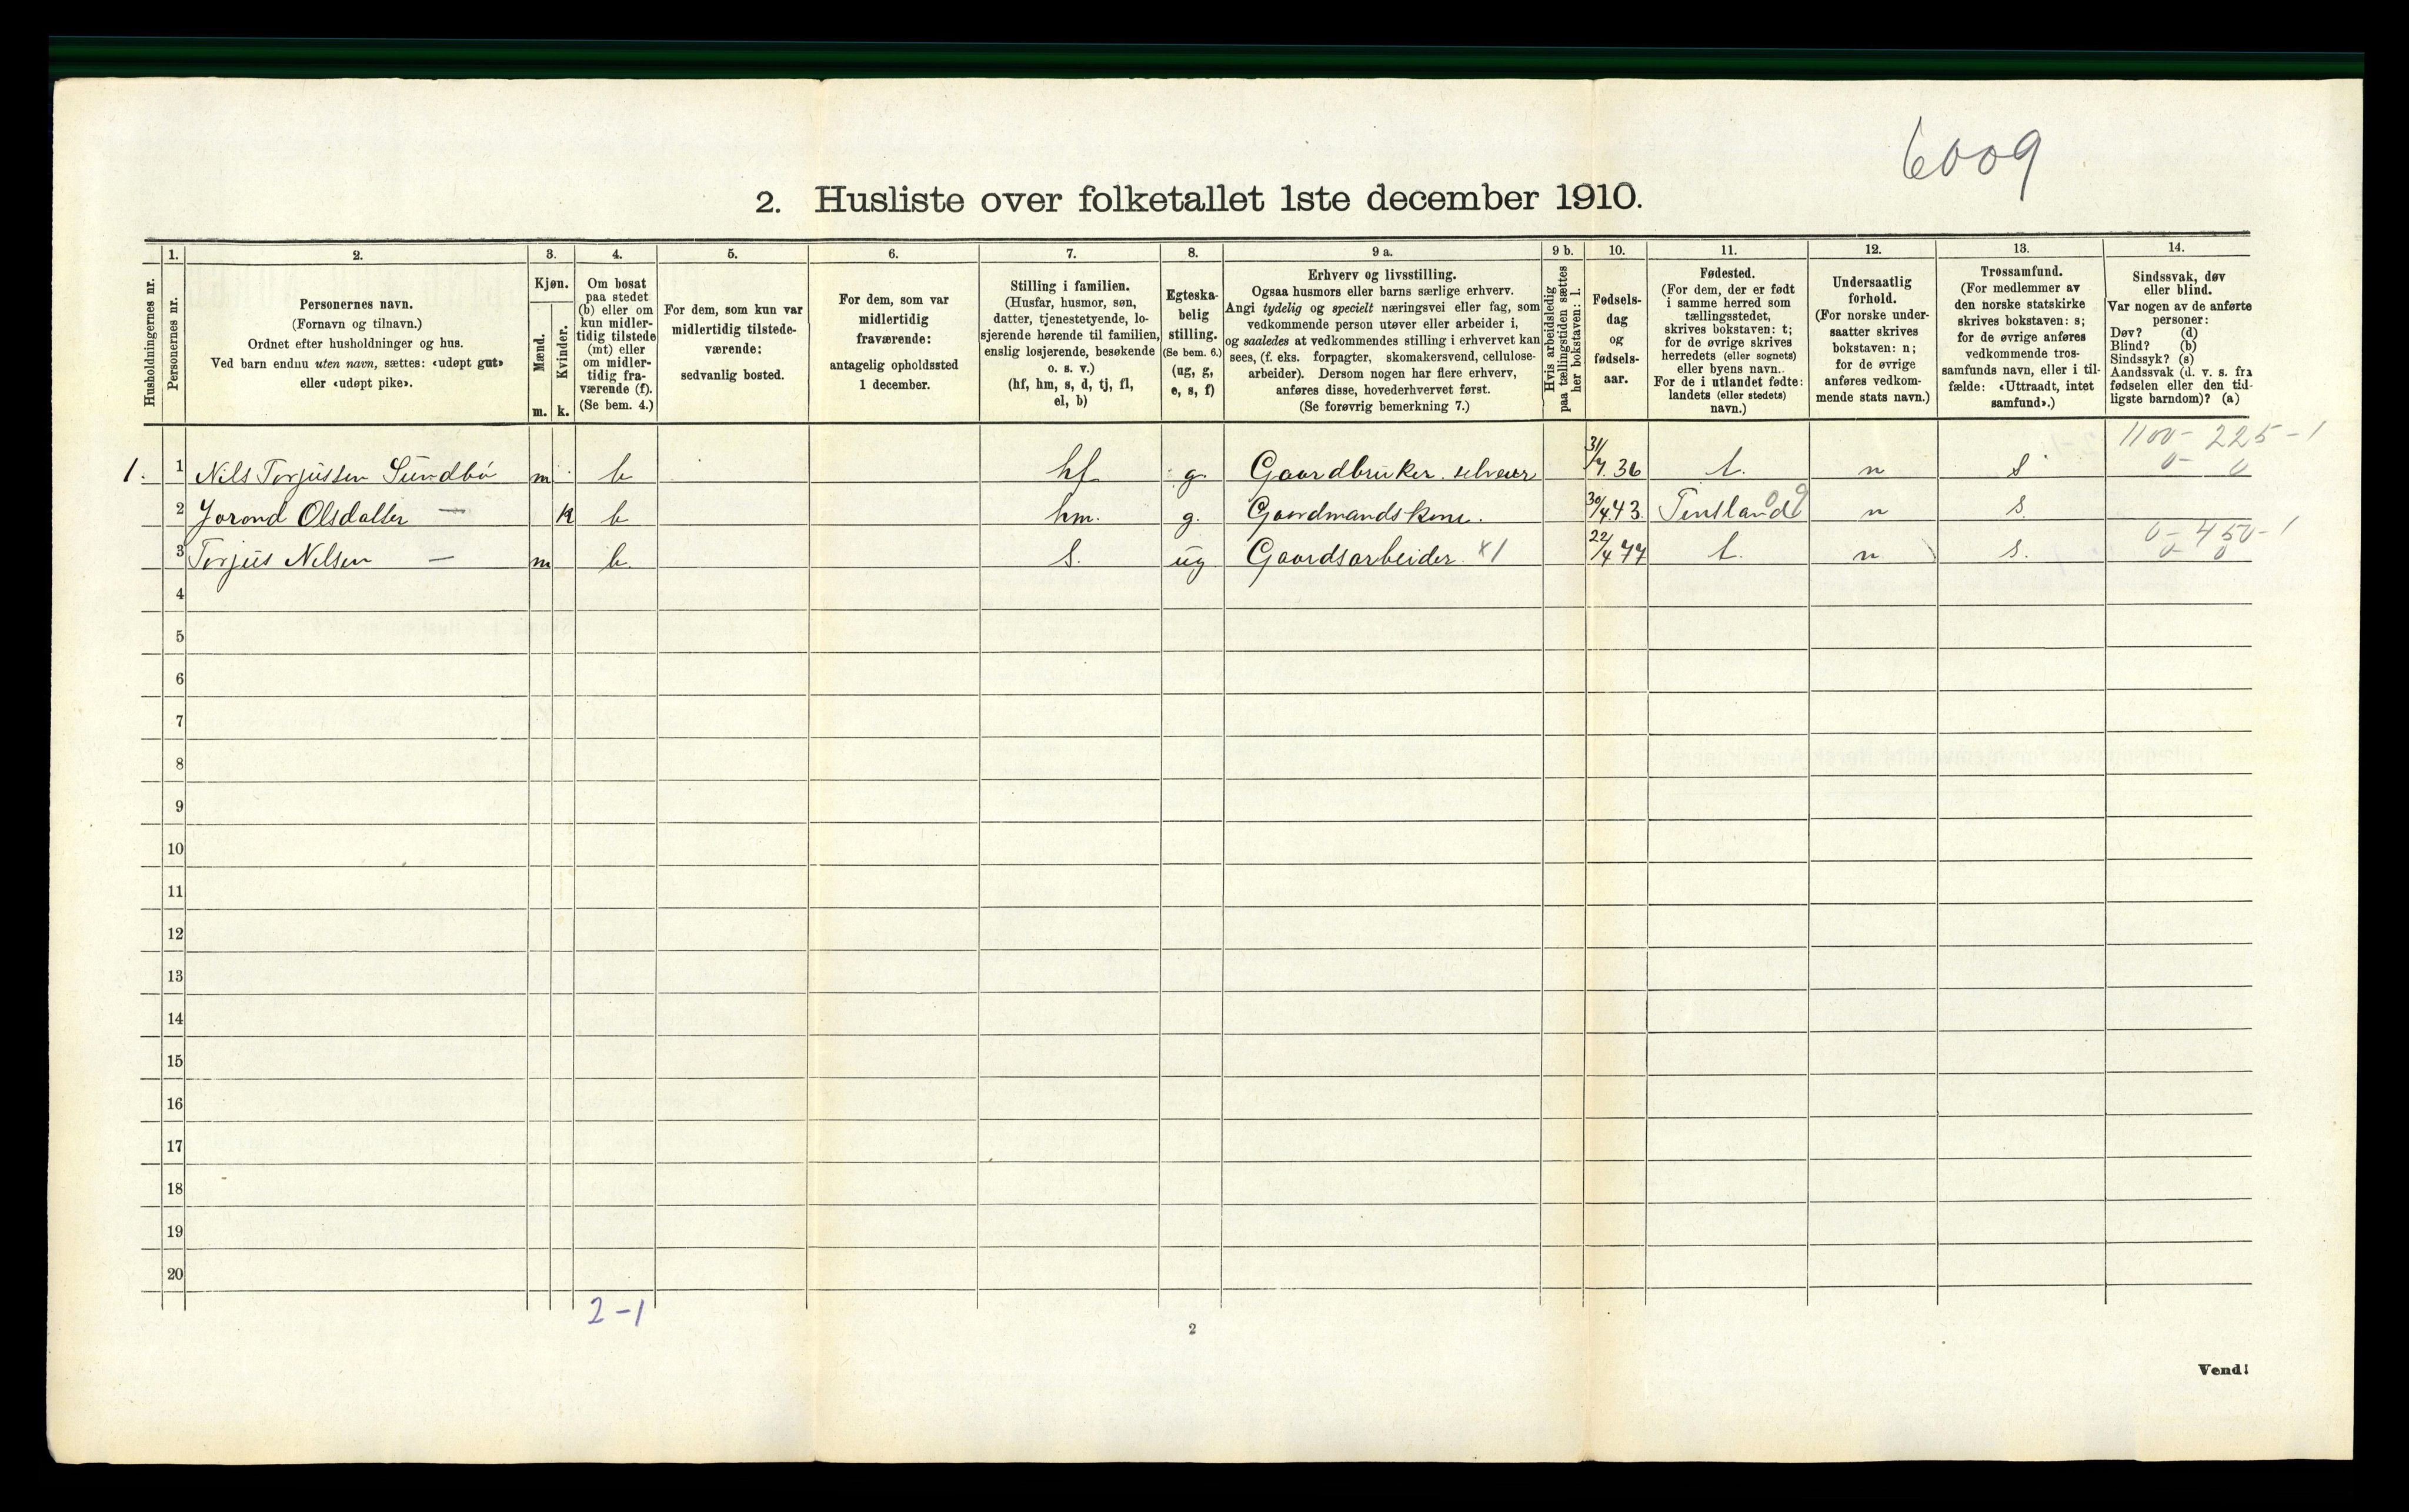 6009
2. Husliste over folketallet 1ste december 1910.
Husholdningernes nr.
1.
Personernes nr.
2.
Personernes navn.
(Fornavn og tilnavn.)
Ordnet efter husholdninger og hus.
Ved barn endnu uten navn, sættes: «udøpt gut»
eller «udøpt pike».
3.
Kjøn.
Mænd.
Kvinder.
m. k.
4.
Om bosat
paa stedet
(b) eller om
kun midler-
tidig tilstede
(mt) eller
om midler-
tidig fra-
værende (f).
(Se bem. 4.)
5.
For dem, som kun var
midlertidig tilstede-
værende:
sedvanlig bosted.
6.
For dem, som var
midlertidig
fraværende:
antagelig opholdssted
1 december.
7.
Stilling i familien.
(Husfar, husmor, søn,
datter, tjenestetyende, lo-
sjerende hørende til familien,
enslig losjerende, besøkende
o. s. v.)
(hf, hm, s, d, tj, fl,
el, b)
8.
Egteska-
belig
stilling.
(Se bem. 6.)
(ug, g,
e, s, f)
9 a.
Erhverv og livsstilling.
Ogsaa husmors eller barns særlige erhverv.
Angi tydelig og specielt næringsvei eller fag, som
vedkommende person utøver eller arbeider i,
og saaledes at vedkommendes stilling i erhvervet kan
sees, (f. eks. forpagter, skomakersvend, cellulose-
arbeider). Dersom nogen har flere erhverv,
anføres disse, hovederhvervet først.
(Se forøvrig bemerkning 7.)
9 b.
Hvis arbeidsledig
paa tællingstiden sættes
her bokstaven: l.
10.
Fødsels-
dag
og
fødsels-
aar.
11.
Fødested.
(For dem, der er født
i samme herred som
tællingsstedet,
skrives bokstaven: t;
for de øvrige skrives
herredets (eller sognets)
eller byens navn.
For de i utlandet fødte:
landets (eller stedets)
navn.)
12.
Undersaatlig
forhold.
(For norske under-
saatter skrives
bokstaven: n;
for de øvrige
anføres vedkom-
mende stats navn.)
13.
Trossamfund.
(For medlemmer av
den norske statskirke
skrives bokstaven: s;
for de øvrige anføres
vedkommende tros-
samfunds navn, eller i til-
fælde: «Uttraadt, intet
samfund».)
14.
Sindssvak, døv
eller blind.
Var nogen av de anførte
personer:
Døv? (d)
Blind? (b)
Sindssyk? (s)
Aandssvak (d. v. s. fra
fødselen eller den tid-
ligste barndom)? (a)
1100 - 225 - 1
1. 1 Nils Torjussen Sundbö m b hf g. Gaardbruker selveier 31/7.36 t. n s 0 - 0
2 Jorond Olsdatter — k b hm. g. Gaardmandskone. 30/4.43. n s.
0 - 450 - 1
3 Torjus Nilsen — m b. s. ug Gaardsarbeider. x1 22/4 77 t. n s. 0 - 0
4
5
6
7
8
9
10
11
12
13
14
15
16
17
18
19
20
2-1
2
Vend!